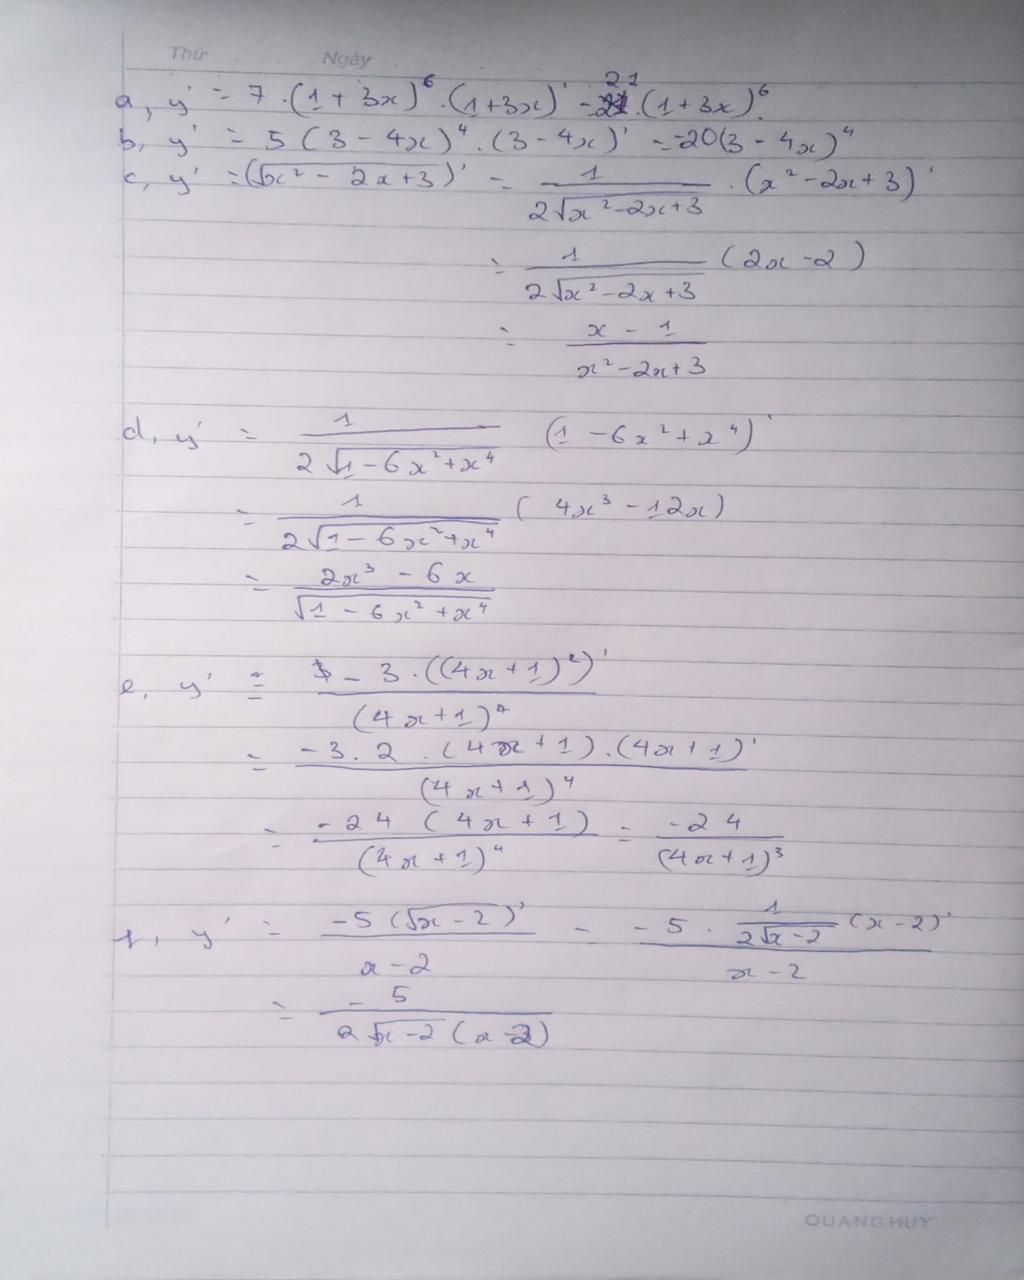 Thứ Ngày
a, y' = 7 . (1 + 3x)^6 . (1 + 3x)' = 21 . (1 + 3x)^6.
b, y' = 5 (3 - 4x)^4 . (3 - 4x)' = -20(3 - 4x)^4
c, y' = (√(x² - 2x + 3))' = 1/(2√(x² - 2x + 3)) . (x² - 2x + 3)'
= 1/(2√(x² - 2x + 3)) (2x - 2)
= (x - 1)/(x² - 2x + 3)
d, y' = 1/(2√(1 - 6x² + x⁴)) (1 - 6x² + x⁴)'
= 1/(2√(1 - 6x² + x⁴)) (4x³ - 12x)
= (2x³ - 6x)/√(1 - 6x² + x⁴)
e, y' = (- 3 . ((4x + 1)²)')/(4x + 1)⁴
= (- 3 . 2 . (4x + 1) . (4x + 1)')/(4x + 1)⁴
= (-24 (4x + 1))/(4x + 1)⁴ = -24/(4x + 1)³
f, y' = (-5 (√(x - 2))')/(x - 2) = (- 5 . 1/(2√(x - 2)) (x - 2)')/(x - 2)
= - 5/(2√(x - 2) (x - 2))
QUANG HUY